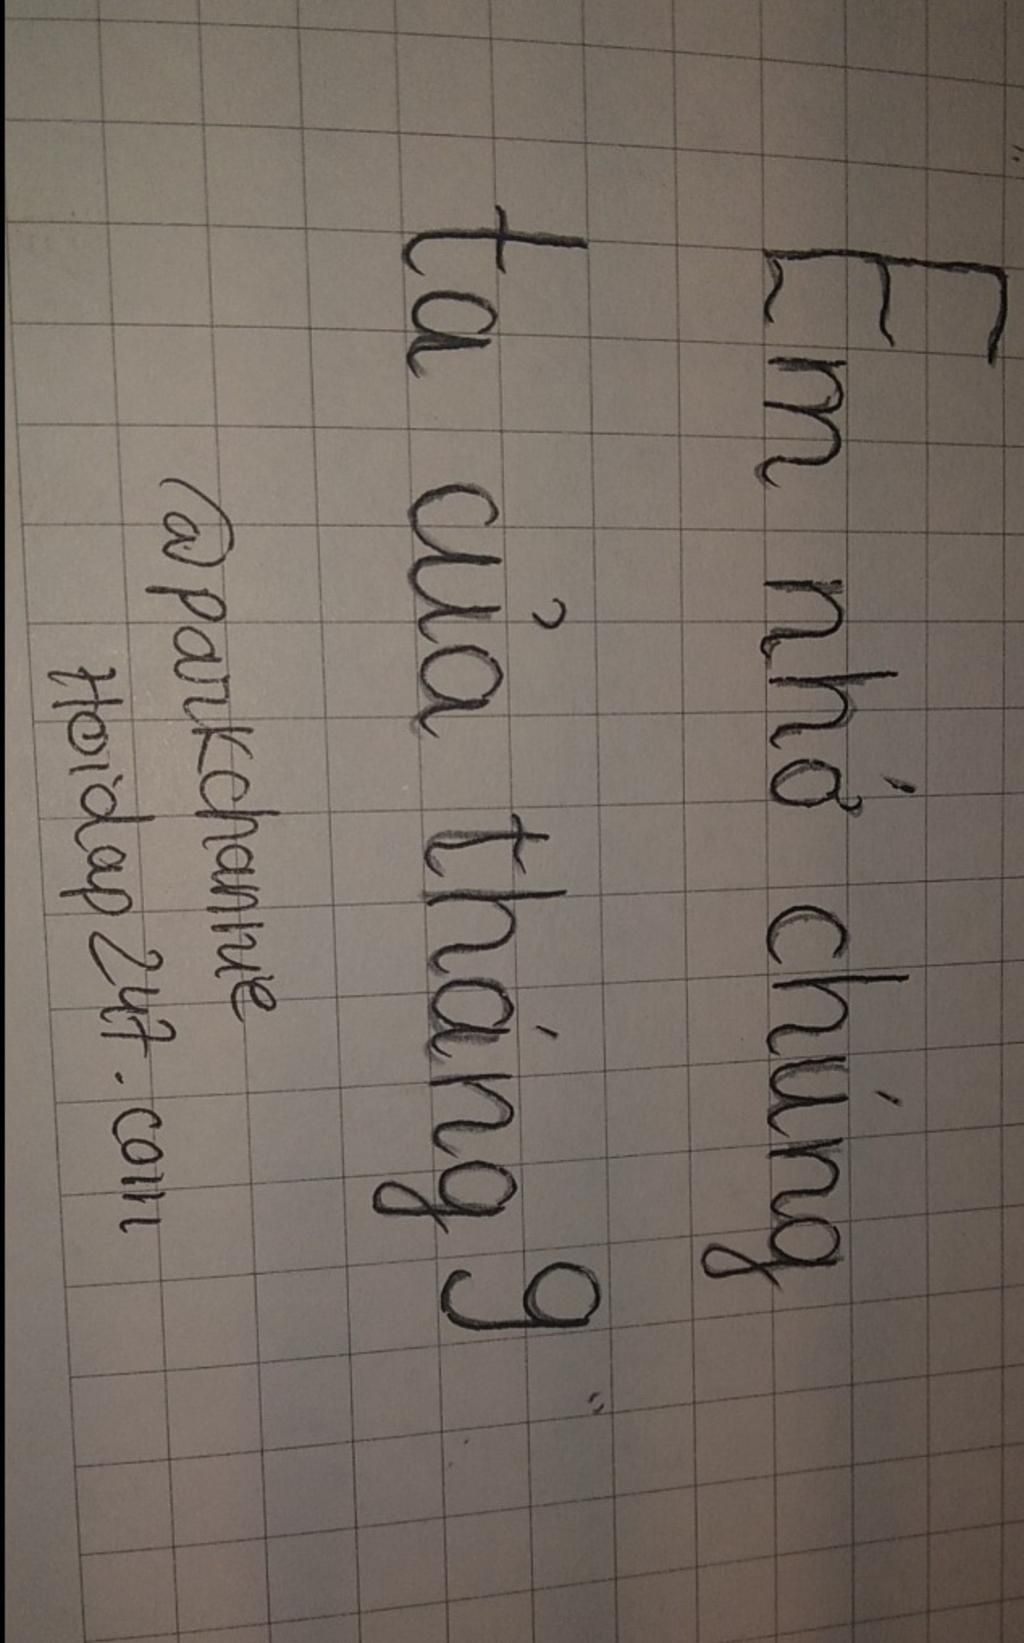 " Em nhớ chúng
ta của tháng 9 "
@parkchannie
Hoidap247.com